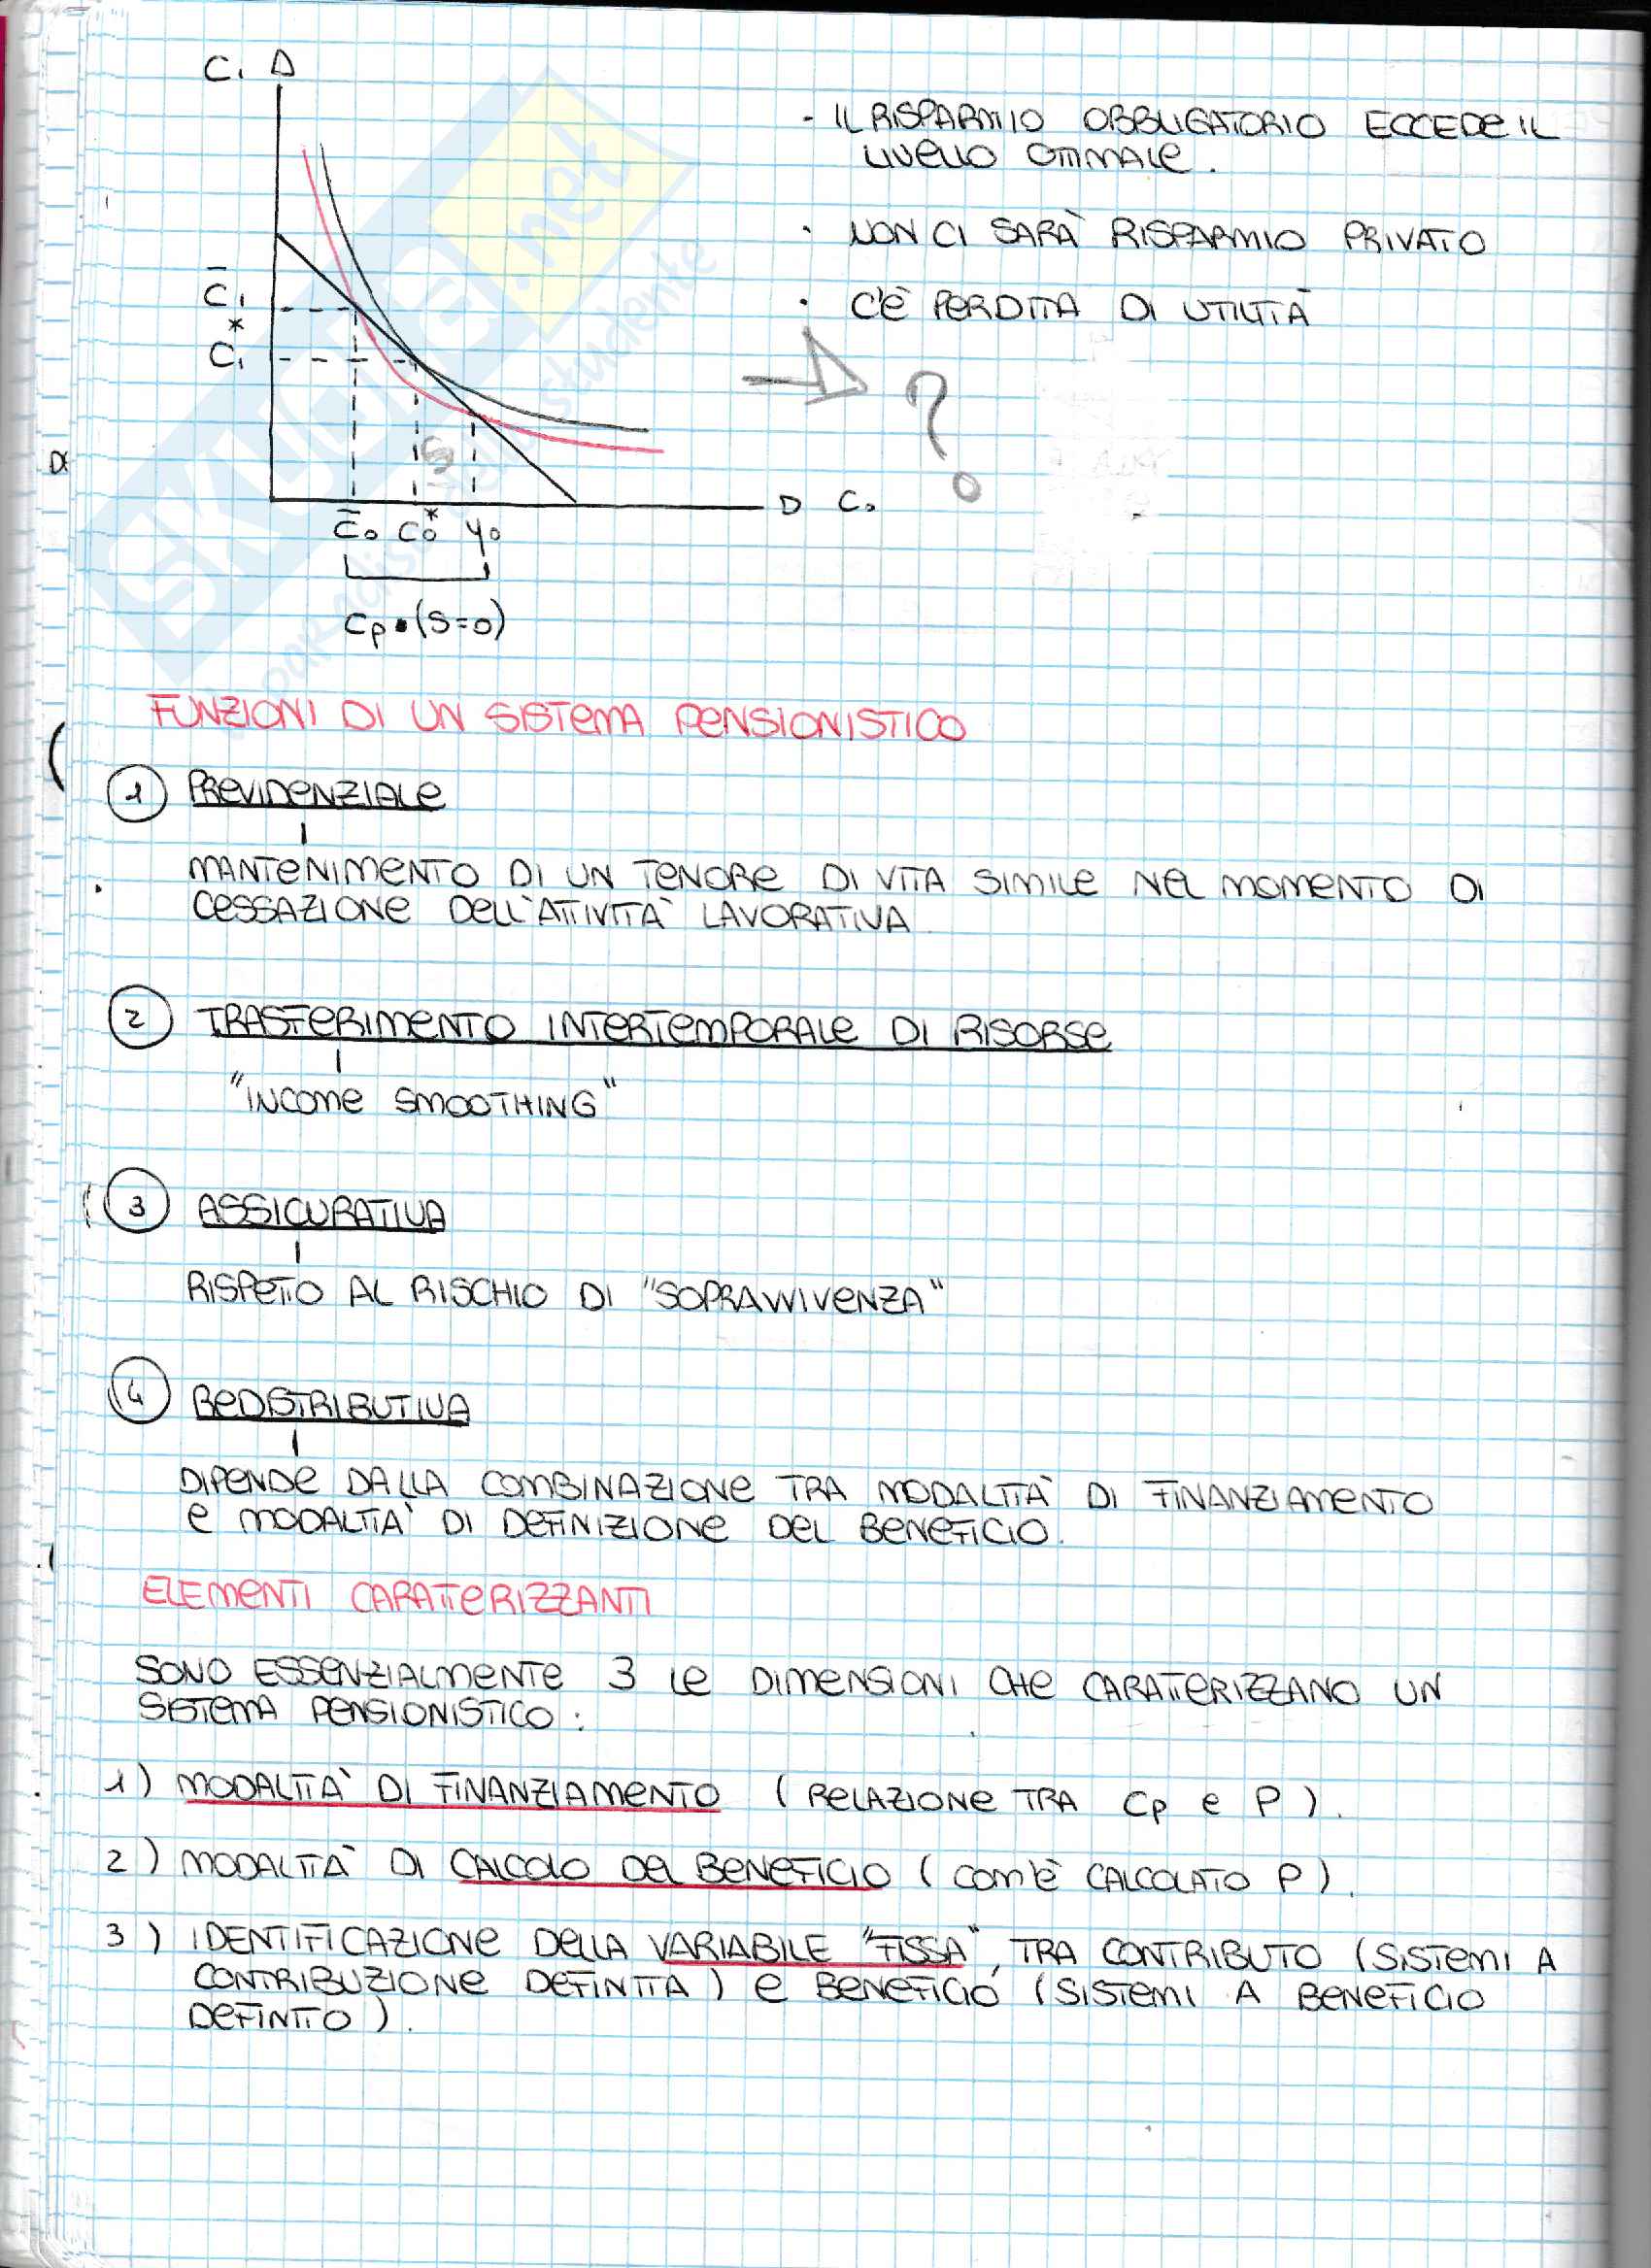 C₁
- IL RISPARMIO OBBLIGATORIO ECCEDE IL
LIVELLO OTTIMALE.
· NON CI SARÀ RISPARMIO PRIVATO
C̄₁
· C'È PERDITA DI UTILITÀ
C₁*
?
S
C₀
C̄₀ C₀* Y₀
Cp (S=0)
SKUOLA.net
FUNZIONI DI UN SISTEMA PENSIONISTICO
1 PREVIDENZIALE
MANTENIMENTO DI UN TENORE DI VITA SIMILE NEL MOMENTO DI
CESSAZIONE DELL'ATTIVITÀ LAVORATIVA
2 TRASFERIMENTO INTERTEMPORALE DI RISORSE
"INCOME SMOOTHING"
3 ASSICURATIVA
RISPETTO AL RISCHIO DI "SOPRAVVIVENZA"
4 REDISTRIBUTIVA
DIPENDE DALLA COMBINAZIONE TRA MODALITÀ DI FINANZIAMENTO
E MODALITÀ DI DEFINIZIONE DEL BENEFICIO.
ELEMENTI CARATTERIZZANTI
SONO ESSENZIALMENTE 3 LE DIMENSIONI CHE CARATTERIZZANO UN
SISTEMA PENSIONISTICO:
1) MODALITÀ DI FINANZIAMENTO (RELAZIONE TRA Cp e P).
2) MODALITÀ DI CALCOLO DEL BENEFICIO (COM'È CALCOLATO P).
3) IDENTIFICAZIONE DELLA VARIABILE "FISSA", TRA CONTRIBUTO (SISTEMI A
CONTRIBUZIONE DEFINITA) E BENEFICIO (SISTEMI A BENEFICIO
DEFINITO).